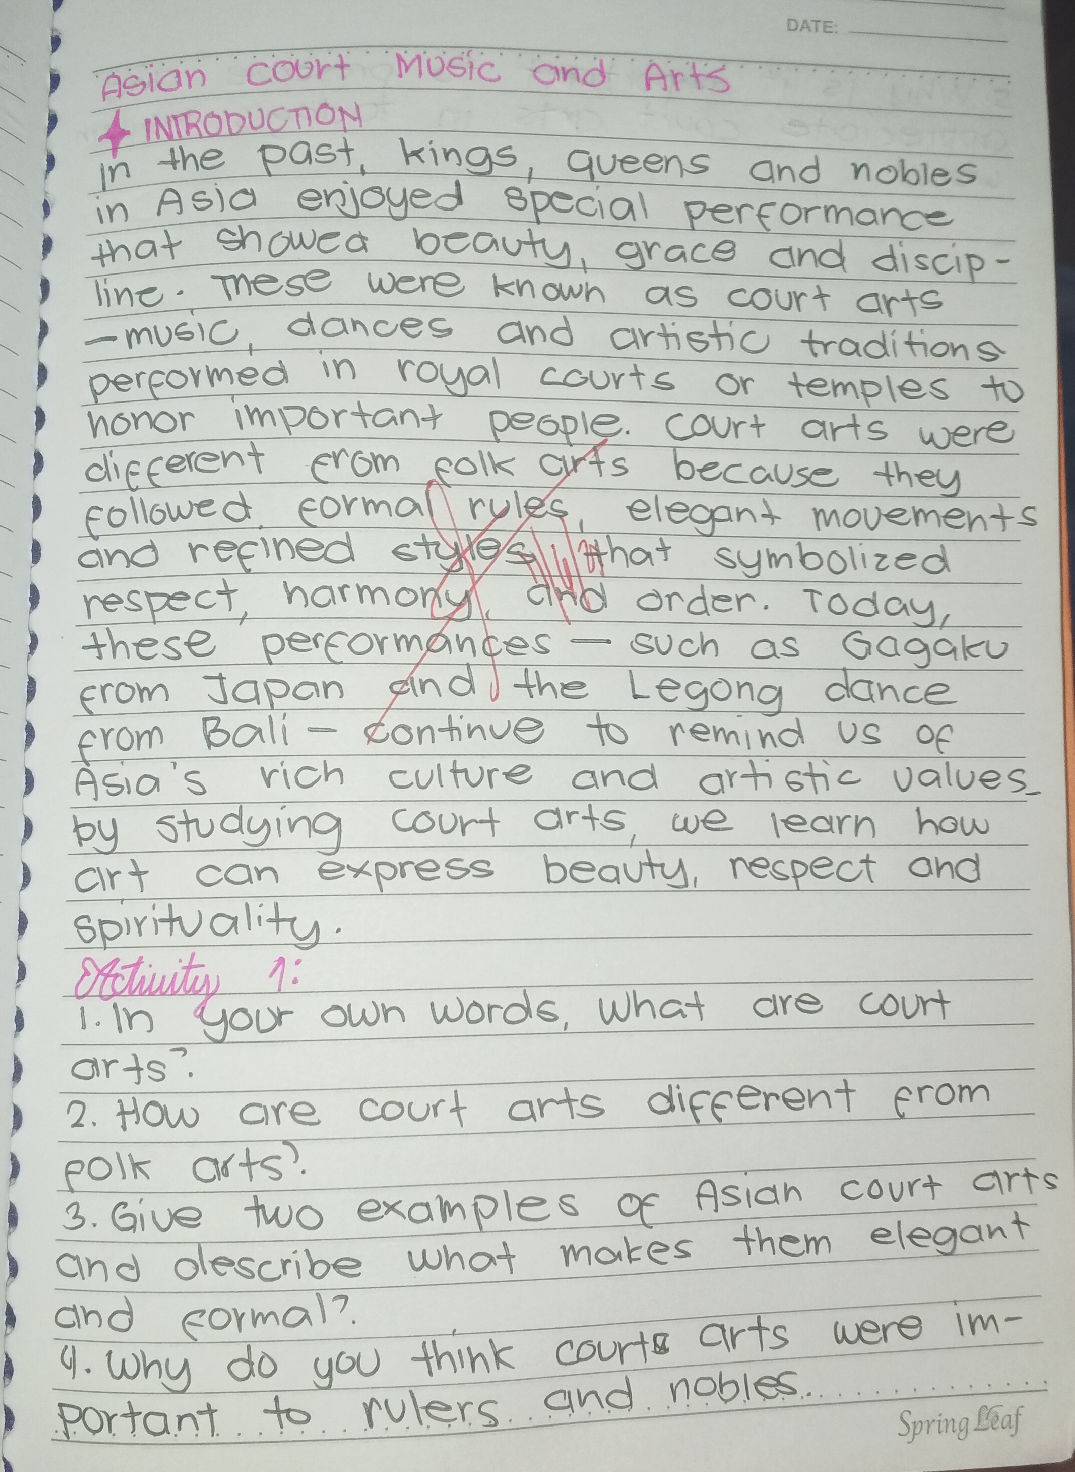 DATE:
Asian Court Music and Arts
INTRODUCTION
In the past, kings, queens and nobles
in Asia enjoyed special performance
that showed beauty, grace and discip-
line. These were known as court arts
-music, dances and artistic traditions
performed in royal courts or temples to
honor important people. Court arts were
different from folk arts because they
followed formal rules, elegant movements
and refined styles that symbolized
respect, harmony, and order. Today,
these performances - such as Gagaku
from Japan and the Legong dance
from Bali - continue to remind us of
Asia's rich culture and artistic values.
by studying court arts, we learn how
art can express beauty, respect and
spirituality.
Activity 1:
1. In your own words, what are court
arts?
2. How are court arts different from
folk arts?
3. Give two examples of Asian court arts
and describe what makes them elegant
and formal?
4. Why do you think courts arts were im-
portant to rulers and nobles.
Spring Leaf